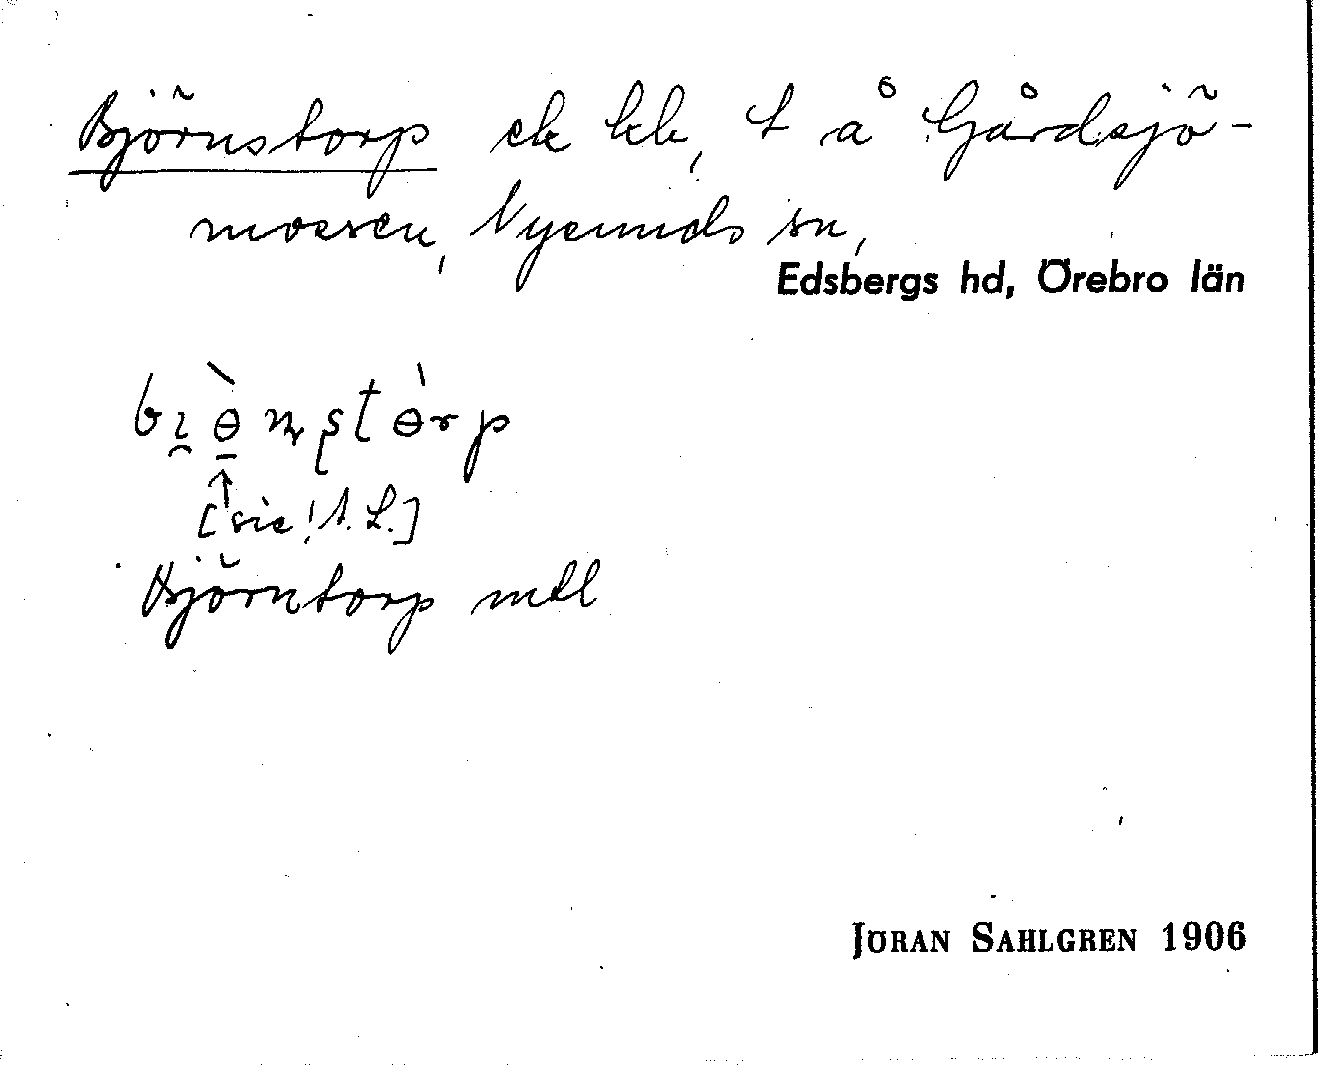 Björnstorp ek kb, t å Gårdsjö-
mossen, Nysunds sn,
Edsbergs hd, Örebro län
[sic! A. L.]
Björntorp mtl
JÖRAN SAHLGREN 1906